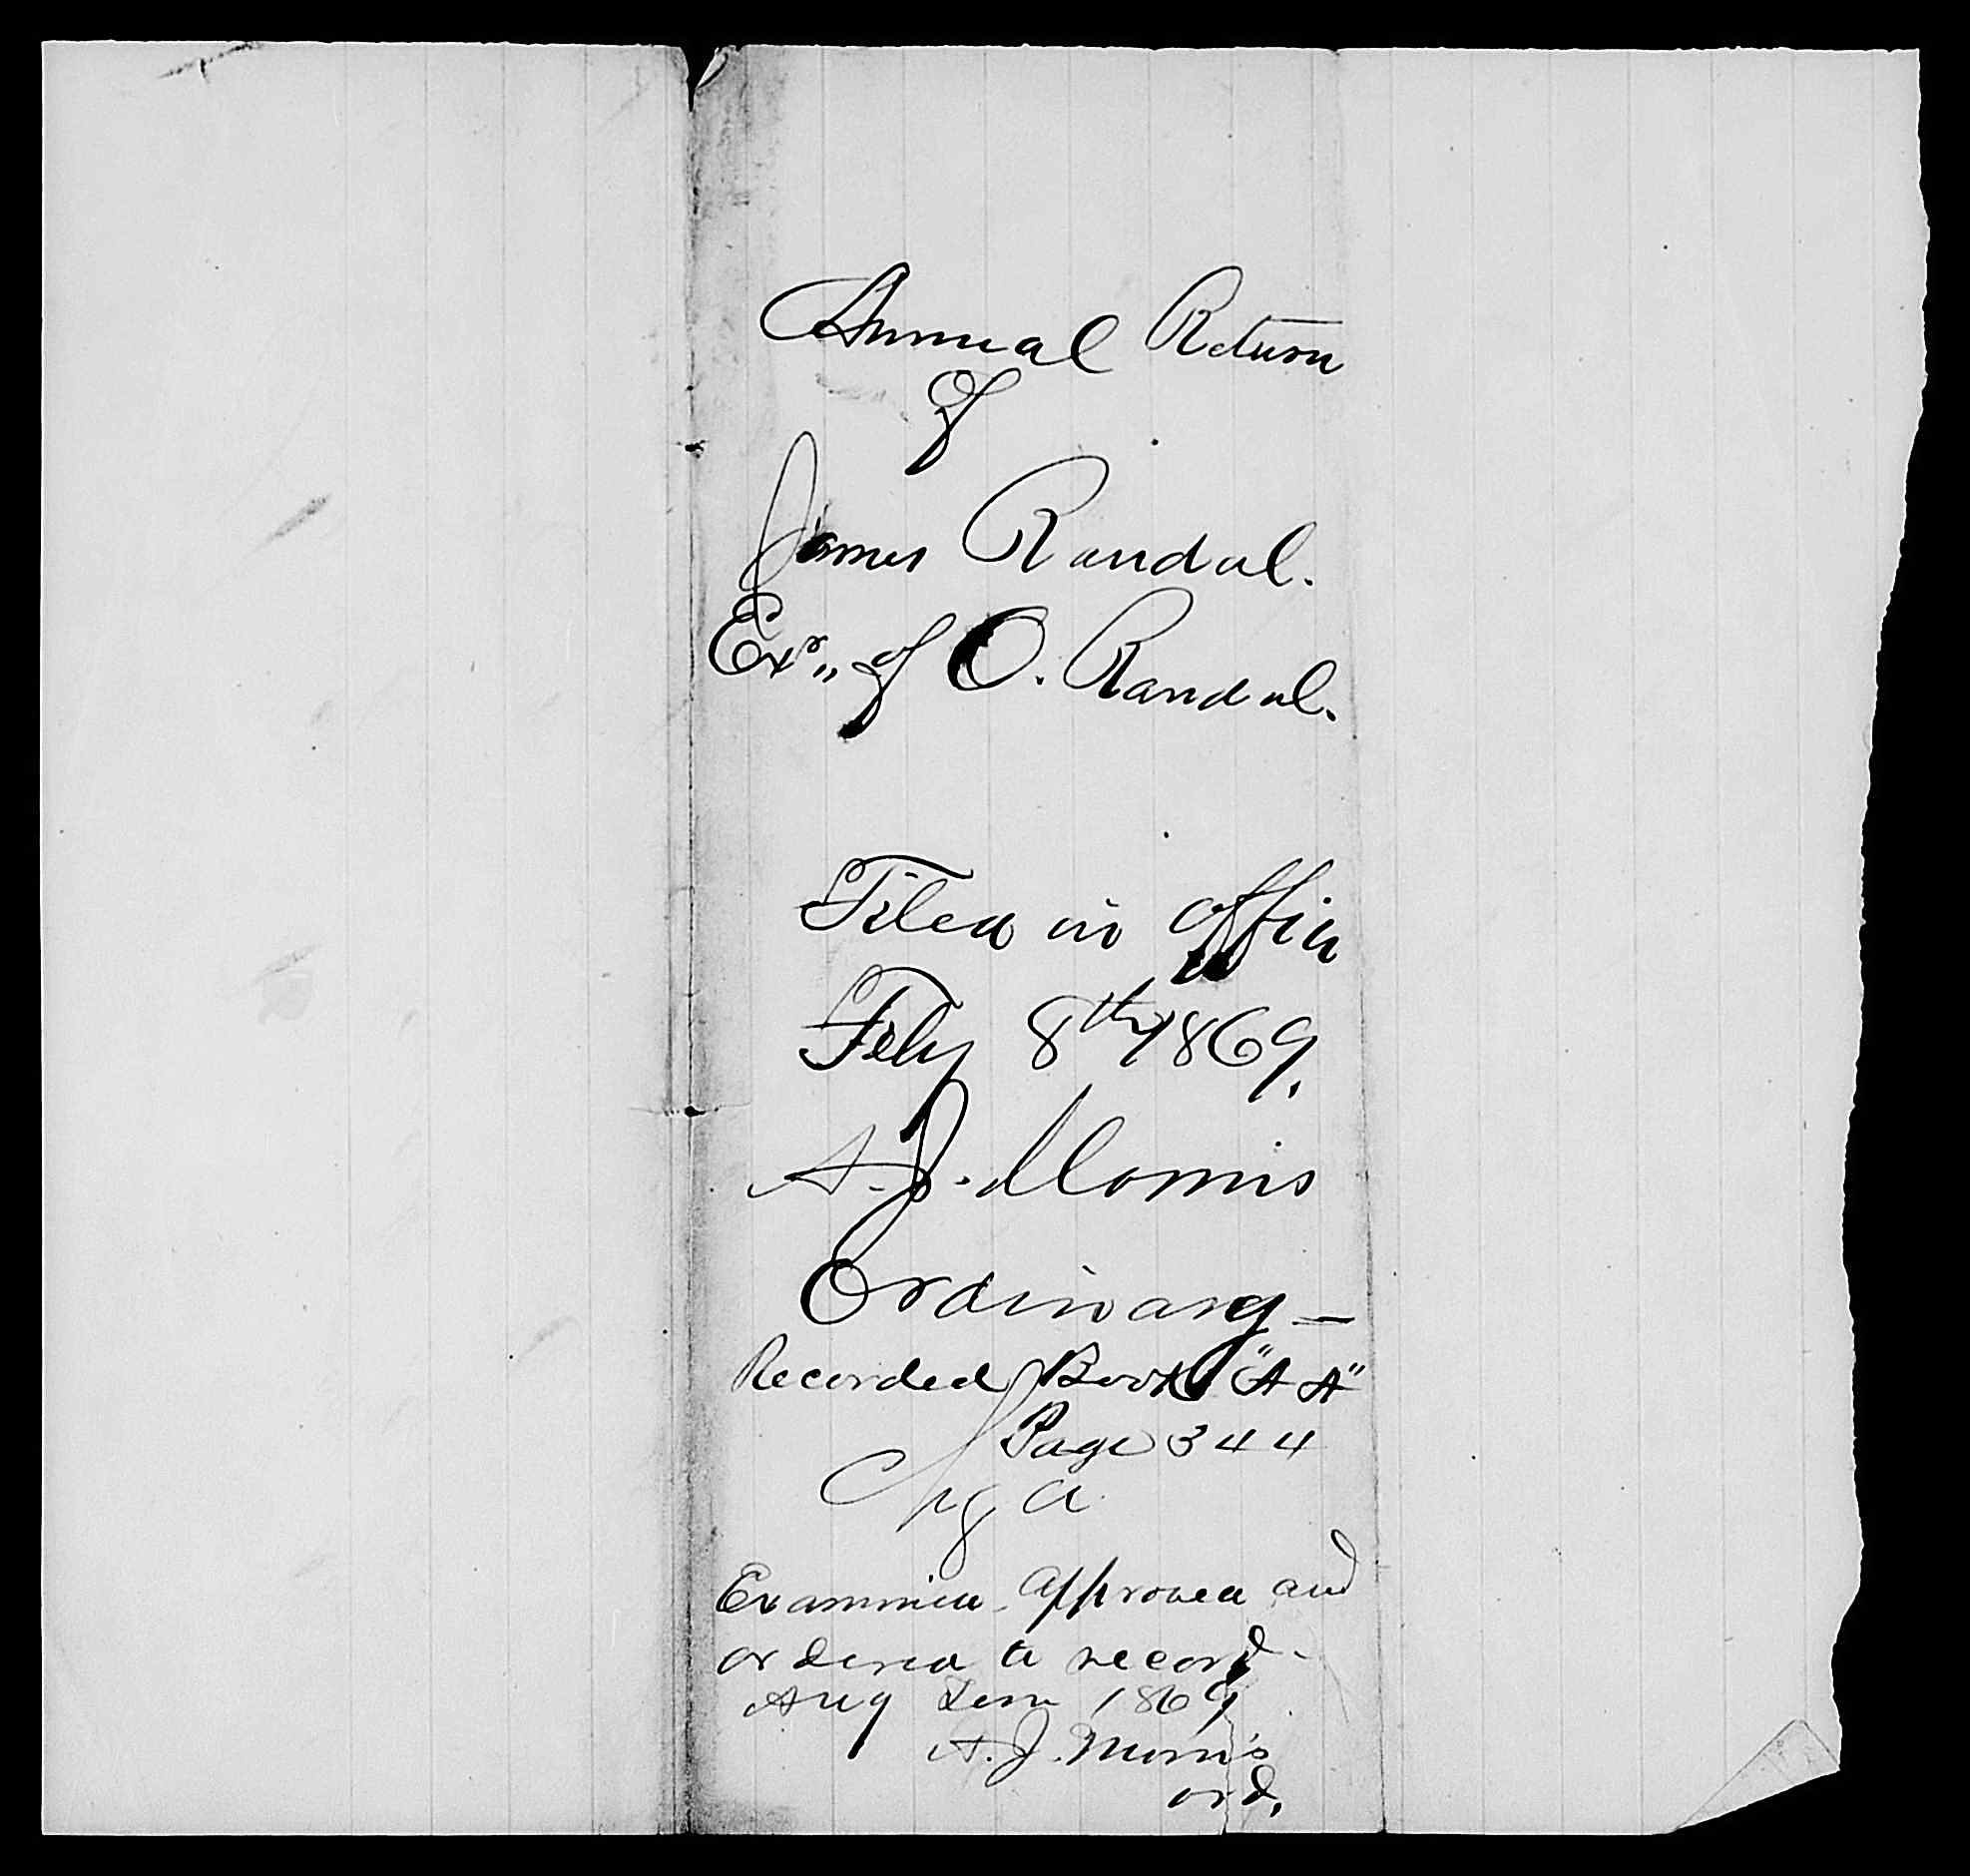 Annual Return
of
James Randal.
Exr,, of O. Randal.
Filed in office
Feby 8th 1869.
A. J. Morris
Ordinary —
Recorded Book "A A"
Page 344
Examined Approved and
ordered to record -
Aug Term 1869
A. J. Morris
ord.